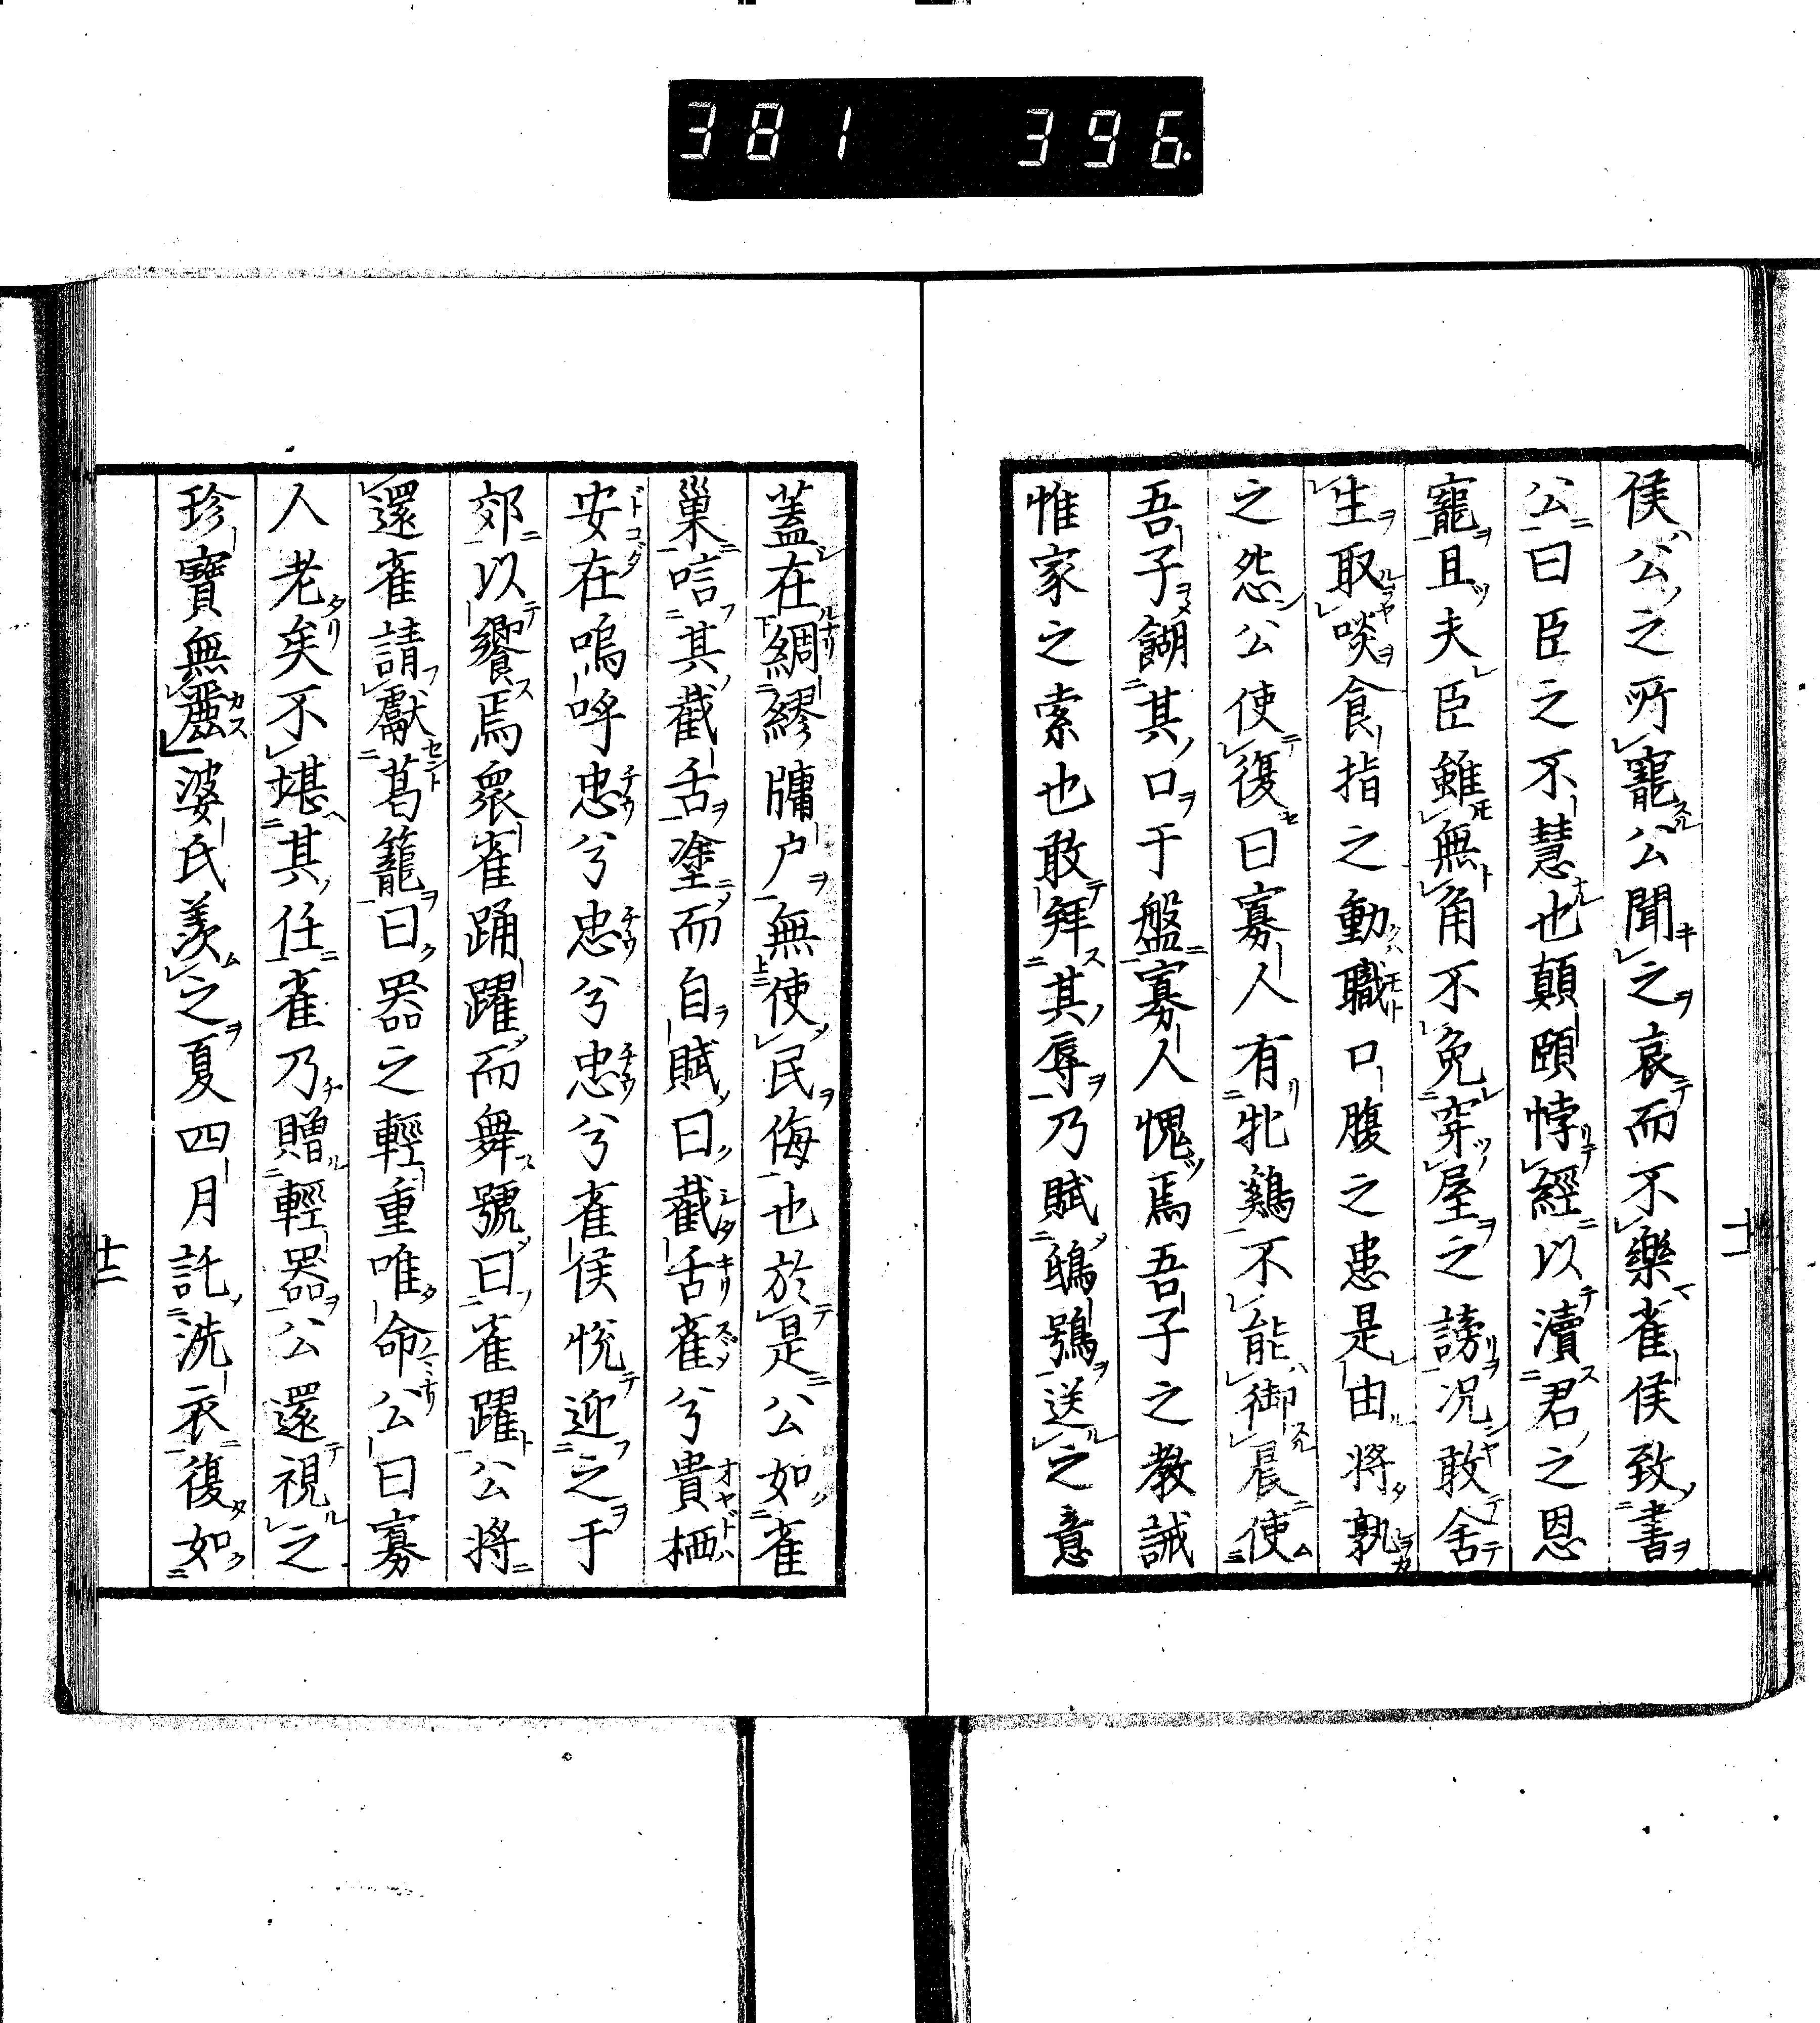 381 396.
十一
侯公之所寵公聞之哀而不樂雀侯致書
公曰臣之不慧也顛頤悖經以瀆君之恩
寵且夫臣雖無角不免穿屋之謗况敢舍
生取啖食指之動職口腹之患是由將孰
之怨公使復曰寡人有牝鷄不能御晨使
吾子餬其口于盤寡人愧焉吾子之教誡
惟家之索也敢拜其辱乃賦鴟鴞送之意
蓋在綢繆牖户無使民侮也於是公如雀
巢唁其截舌塗而自賦曰截舌雀兮貴栖
安在嗚呼忠兮忠兮忠兮雀侯悅迎之于
郊以饗焉衆雀踊躍而舞號曰雀躍公將
還雀請獻葛籠曰器之輕重唯命公曰寡
人老矣不堪其任雀乃贈輕器公還視之
珍寶無麗婆氏羨之夏四月託洗衣復如
十二